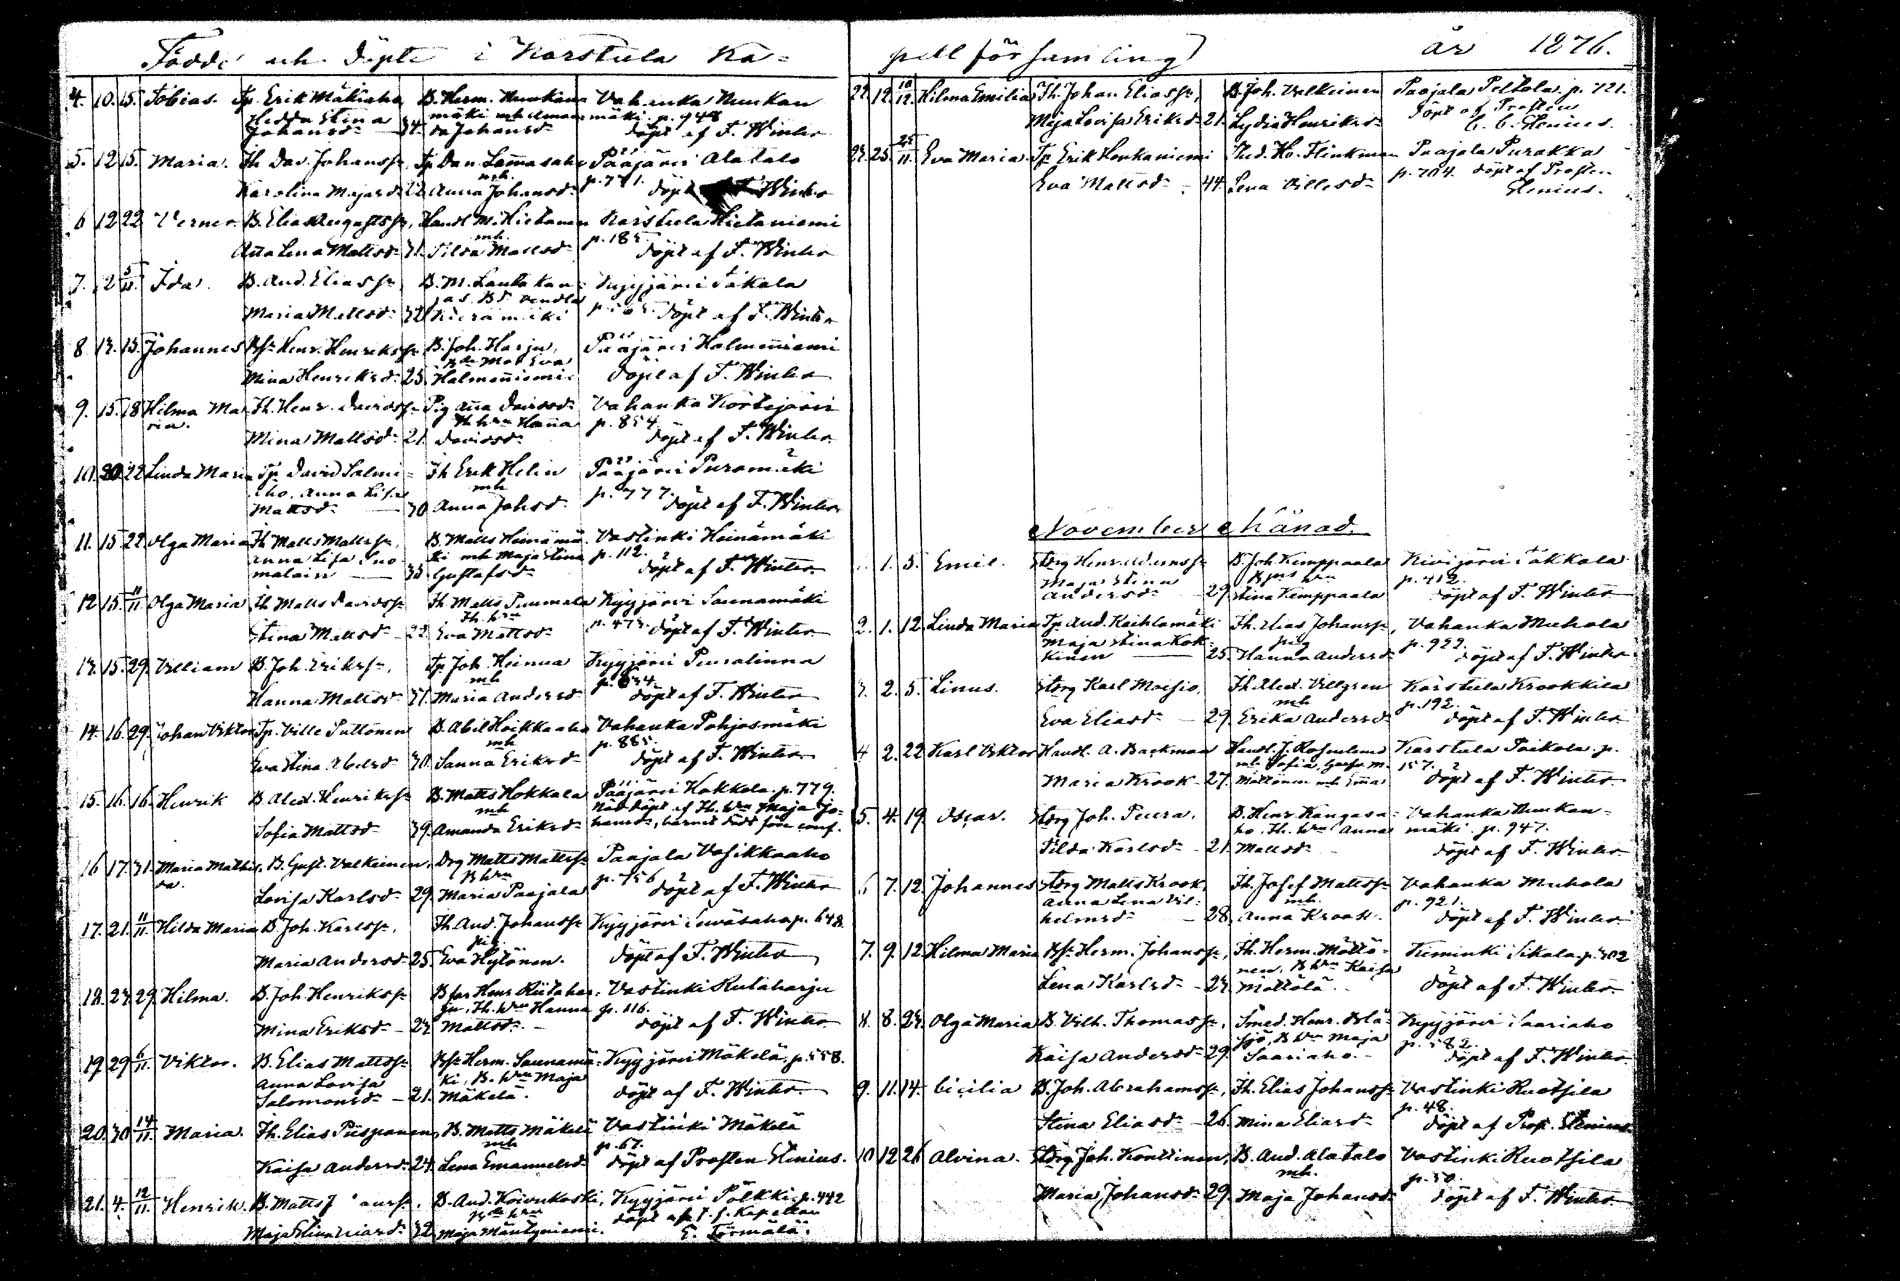 Födde och Döpte i Karstula Ka=
4. 10. 15. Tobias. Tp. Erik Mäkiaho, B. Herm. Humkan= Vahanka Humkan
Hedda Stina mäki mh Aman= mäki. p. 948
Johansd 34. da Johansd döpt af F. Winter
5. 12 15. Maria. Th. Dav. Johanss, Tp Dan. Lamasaho Pääjärvi Alatalo
mh. p. 771.
Karolina Majasd 22 Anna Johansd döpt F. Winter
6 12 22 Verner B. Elias Augustss, Handl M. Hietanen Karstula Hietaniemi
mh p. 185.
Anna Lena Mattsd 31. Tilda Mattsd döpt af F. Winter
7. 2 5/11. Ida. B. And. Eliass, B. M. Lautakan= Kyyjärvi
Maria Mattsd 32 döpt af F. Winter
8 13. 15. Johannes Bs Henr. Henrikss B. Joh. Harju, Pääjärvi Halmeniemi
Eva
Mina Henriksd 25. Halmeniemi döpt af F. Winter
9. 15. 18 Hilma Ma Th. Henr. Davidss Pig Anna Davidsd Vahanka Kortejärvi
ria. Hanna p. 854
Mina Mattsd 21. Davidsd döpt af F. Winter
10. 20. 22 Linda Maria Tp. David Salmi= Th Erik Helin Pääjärvi Puromäki
aho, Anna Lisa mh p. 777.
Mattsd 30 Anna Johsd döpt af F. Winter
11. 15. 22 Olga Maria Th Matts Mattss, B. Matts Heinämä Vastinki Heinämäki
Anna Lisa ki mh Maja Stina p. 112.
35 Gustafsd döpt af F. Winter
12 15. 11/11 Olga Maria Th Matts Davidss Th. Matts Puumala Kyyjärvi Saunamäki
p. 473.
Stina Mattsd 22. Eva Mattsd döpt af F. Winter
13. 15. 29. Villiam B. Joh. Erikss, Tp Joh. Heinua Kyyjärvi Peuralinna
mh
Hanna Mattsd 31. Maria Andersd döpt af F. Winter
14. 16. 29. Johan Viktor Tp. Ville Puttonen B. Abel Hoikkaaho Vahanka Pohjosmäki
mh p. 885.
Eva Stina Abelsd 30. Sanna Eriksd döpt af F. Winter
15. 16. 16. Henrik B. Alexd. Henrikss B. Matts Hokkala Pääjärvi Hokkala p. 779.
mh nöddöpt af Th. Maja Jo=
Sofia Mattsd 39. Amanda Eriksd hansd, barnet dödt före conf.
16 17. 31. Maria Mathil B. Gust. Valkeinen, Drg Matts Mattss Paajala Vasikkaaho
da. p. 756
Lovisa Karlsd 29. Maria Paajala döpt af F. Winter
17. 21. 11/11. Hilda Maria B. Joh. Karlss, Th. And. Johanss Kyyjärvi p. 648.
pig
Maria Andersd 25. Eva Hytönen. döpt af F. Winter
18. 23. 29. Hilma. B. Joh. Henrikss Henr Riitahar= Vastinki Rutaharju
ju, Hanna p. 116.
Mina Eriksd 23. Mattsd. döpt af F. Winter
19. 29 6/11. Viktor. B. Elias Mattss Bs Herm. Saunamä= Kyyjärvi Mäkelä. p. 558.
Anna Lovisa ki, B. Maja
Salomonsd 21. Mäkelä. döpt af F. Winter
20. 30 14/11 Maria. Th. Elias Piispanen, B. Matts Mäkelä Vastinki Mäkelä
mh p. 67.
Kaisa Andersd 24. Lena Emanuelsd döpt af Prosten Stenius.
21. 4. 12/11. Henrik. B. Matts B. And. Koivukoski, Kyyjärvi Pölkki. p. 442
döpt af Kapellan
32. Maja Mäntyniemi. E. Törmälä.
pell församling år 1876.
22. 12. 10/12. Hilma Emilia Th. Johan Eliass, B. Joh. Valkeinen Paajala Peltola. p. 721.
döpt af Prosten
Maja Lovisa Eriksd 21. Lydia Henriksd C. C. Stenius.
23. 25 25/11. Eva Maria Tp Erik Honkaniemi Flinkman Paajala Purakka
p. 704. döpt af Prosten
Eva Mattsd 44. Lena Villesd Stenius.
November Månad.
1. 5. Emil. Torg Henr. B. Joh Kemppaala Kivijärvi
Maja Stina p. 412.
Andersd 29. Stina Kemppaala döpt af F. Winter
2. 1. 12 Linda Maria Tp And. Kaihlamäki Th. Elias Johanss, Vahanka Muhola
Maja Stina Kok= pig p. 929.
kinen 25. Hanna Andersd döpt af F. Winter
3. 2. 5. Linus. Torg Karl Moisio, Th. Alexd. Villgren Karstula Krookkila
mh p. 192.
Eva Eliasd 29. Erika Andersd döpt af F. Winter
4 2. 22 Karl Viktor Handl. A. Backman Handl. J. Rosenlund Karstula Paikola. p.
mh Sofia, 157.
Maria Krook 27. döpt af F. Winter
5. 4. 19 Oscar. Torg Joh. Peura, B. Henr Kangasa= Vahanka Humkan=
ho, Th. Anna mäki. p. 947.
Tilda Karlsd 21. Mattsd döpt af F. Winter
6 7. 12. Johannes Torg Matts Krook, Th. Josef Mattss Vahanka Muhola
Anna Lena Vil= mh p. 921.
helmsd 28. Anna Krook. döpt af F. Winter
7. 9. 12 Hilma Maria Bs Herm. Johanss, Th. Herm. Möttö= Kiminki Sikala. p. 302
nen, Kaisa
Lena Karlsd 23. Möttölä. döpt af F. Winter
8. 8. 23. Olga Maria B. Vilh. Thomass, Smed. Henr. Blå= Kyyjärvi Saariaho
sjö, Maja p. 582.
Kaisa Andersd 29. Saariaho. döpt af F. Winter
9. 11. 14. Cicilia B. Joh. Abrahamss, Th. Elias Johanss Vastinki Ruotsila
p. 48.
Stina Eliasd 26. Mina Eliasd döpt af Prost. Stenius
10 12 26 Alvina. Torg Joh. Konttinen, B. And. Alatalo Vastinki Ruotsila
mh. p. 50.
Maria Johansd 29. Maja Johansd döpt af F. Winter